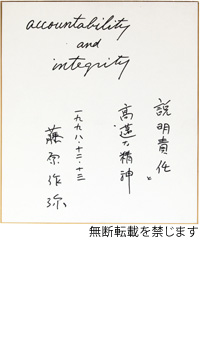 accountability
and
integrity
説明責任と
高邁な精神
一九九八・十二・十三
藤原作弥
無断転載を禁じます